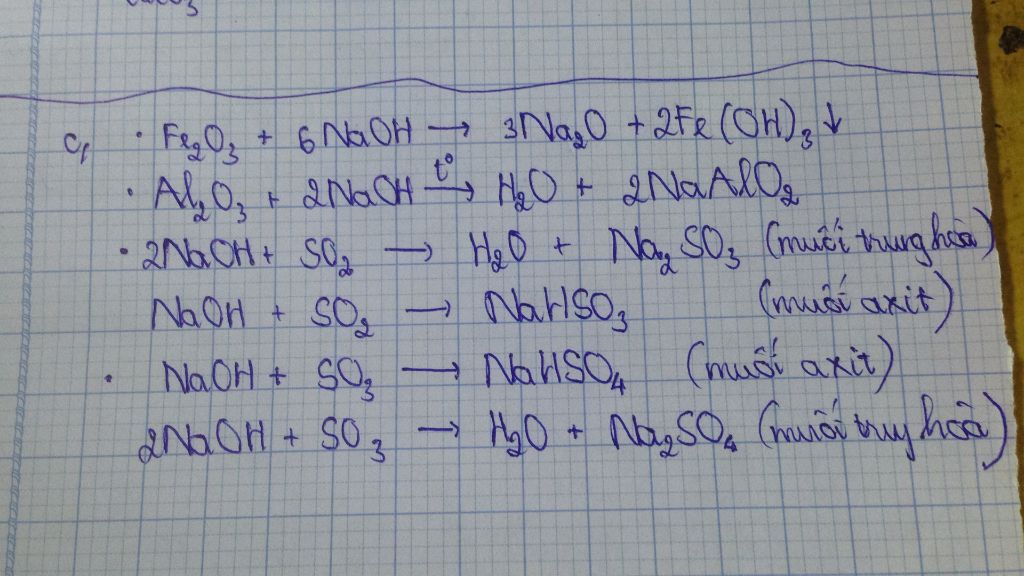 c, · Fe₂O₃ + 6NaOH → 3Na₂O + 2Fe(OH)₃ ↓
· Al₂O₃ + 2NaOH t°→ H₂O + 2NaAlO₂
· 2NaOH + SO₂ → H₂O + Na₂SO₃ (muối trung hoà)
NaOH + SO₂ → NaHSO₃ (muối axit)
· NaOH + SO₃ → NaHSO₄ (muối axit)
2NaOH + SO₃ → H₂O + Na₂SO₄ (muối trug hoà)